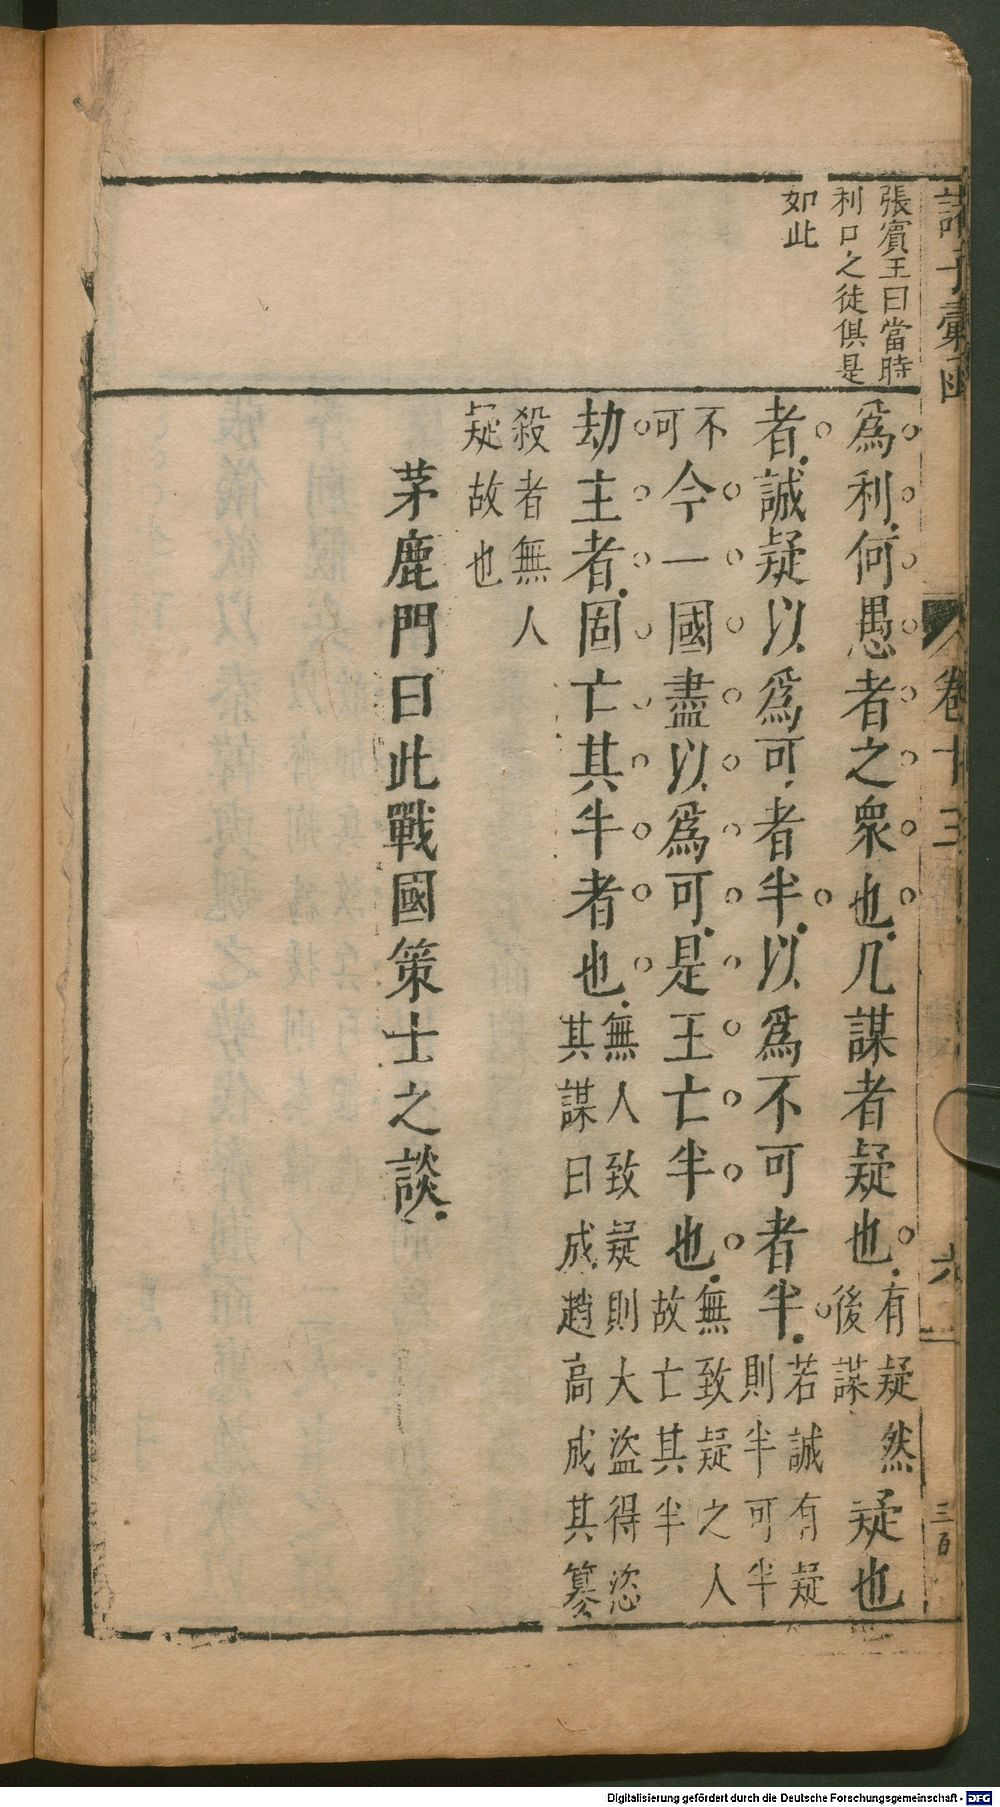 諸子彙函
卷十三
六
三百
張賓王曰當時
利口之徒俱是
如此
爲利何愚者之衆也凡謀者疑也
有疑然
後謀
疑也
者誠疑以爲可者半以爲不可者半
若誠有疑
則半可半
不
可
今一國盡以爲可是王亡半也
無致疑之人
故亡其半
劫主者固亡其半者也
無人致疑則大盜得恣
其謀曰成趙高成其篡
殺者無人
疑故也
茅鹿門曰此戰國策士之談
Digitalisierung gefördert durch die Deutsche Forschungsgemeinschaft - DFG